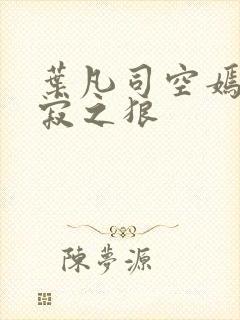 葉凡司空嫣
寂之狠
陳夢源